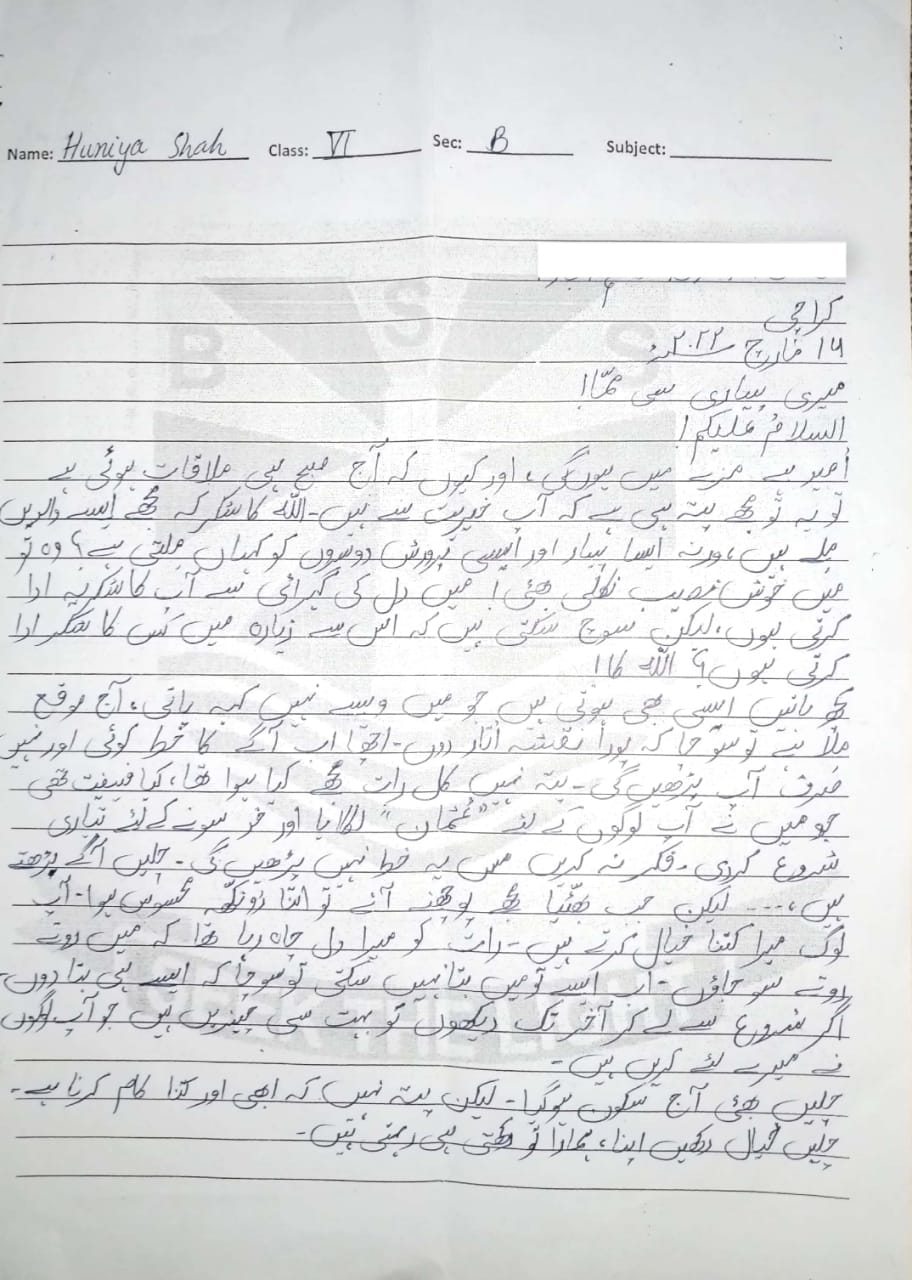 Name: Huniya Shah Class: VI Sec: B Subject:
B S S
کراچی
۱۶ مارچ ۲۰۲۲ء
میری پیاری سی ممّا!
السلامُ علیکم!
اُمید ہے مزے میں ہوں گی، اور کیوں کہ آج صبح ہی ملاقات ہوئی ہے
تو یہ تو مجھے پتہ ہی ہے کہ آپ خیریت سے ہیں۔ اللہ کا شکر کہ مجھے ایسے والدین
ملے ہیں، ورنہ ایسا پیار اور ایسی پرورش دوسروں کو کہاں ملتی ہے؟ وہ تو
میں خوش نصیب نکلی بھئی! میں دل کی گہرائی سے آپ کا شکریہ ادا
کرتی ہوں، لیکن سوچ سکتی ہیں کہ اس سے زیادہ میں کس کا شکر ادا
کرتی ہوں؟ اللہ کا!
کچھ باتیں ایسی بھی ہوتی ہیں جو میں ویسے نہیں کہہ پاتی، آج موقع
ملا ہے تو سوچا کہ پورا نقشہ اتار دوں۔ اچھا اب آگے کا خط کوئی اور نہیں
صرف آپ پڑھیں گی۔ پتہ نہیں کل رات مجھے کیا ہوا تھا، کیا کیفیت تھی
جو میں نے آپ لوگوں کے لئے "عُثمان" لگایا اور خود سونے کے لئے تیّاری
شروع کردی۔ فکر نہ کریں میں یہ خط نہیں پڑھیں گی۔ چلیں آگے بڑھتے
ہیں،... لیکن جب بھئیّا مجھے پوچھنے آئے تو اتنا محسوس ہوا۔ آپ
لوگ میرا کتنا خیال کرتے ہیں۔ رات کو میرا دل چاہ رہا تھا کہ میں روتے
روتے سو جاؤں۔ اب ایسے تو میں بتا نہیں سکتی تو سوچا کہ ایسے ہی بتا دوں
اگر شروع سے لے کر آخر تک دیکھوں تو بہت سی چیزیں ہیں جو آپ لوگوں
نے میرے لئے کریں ہیں۔
چلیں بھئی آج سکون ہوگیا۔ لیکن پتہ نہیں کہ ابھی اور کتنا کام کرنا ہے۔
چلیں خیال رکھیں اپنا، ہمارا تو رکھتی ہی رہتی ہیں۔